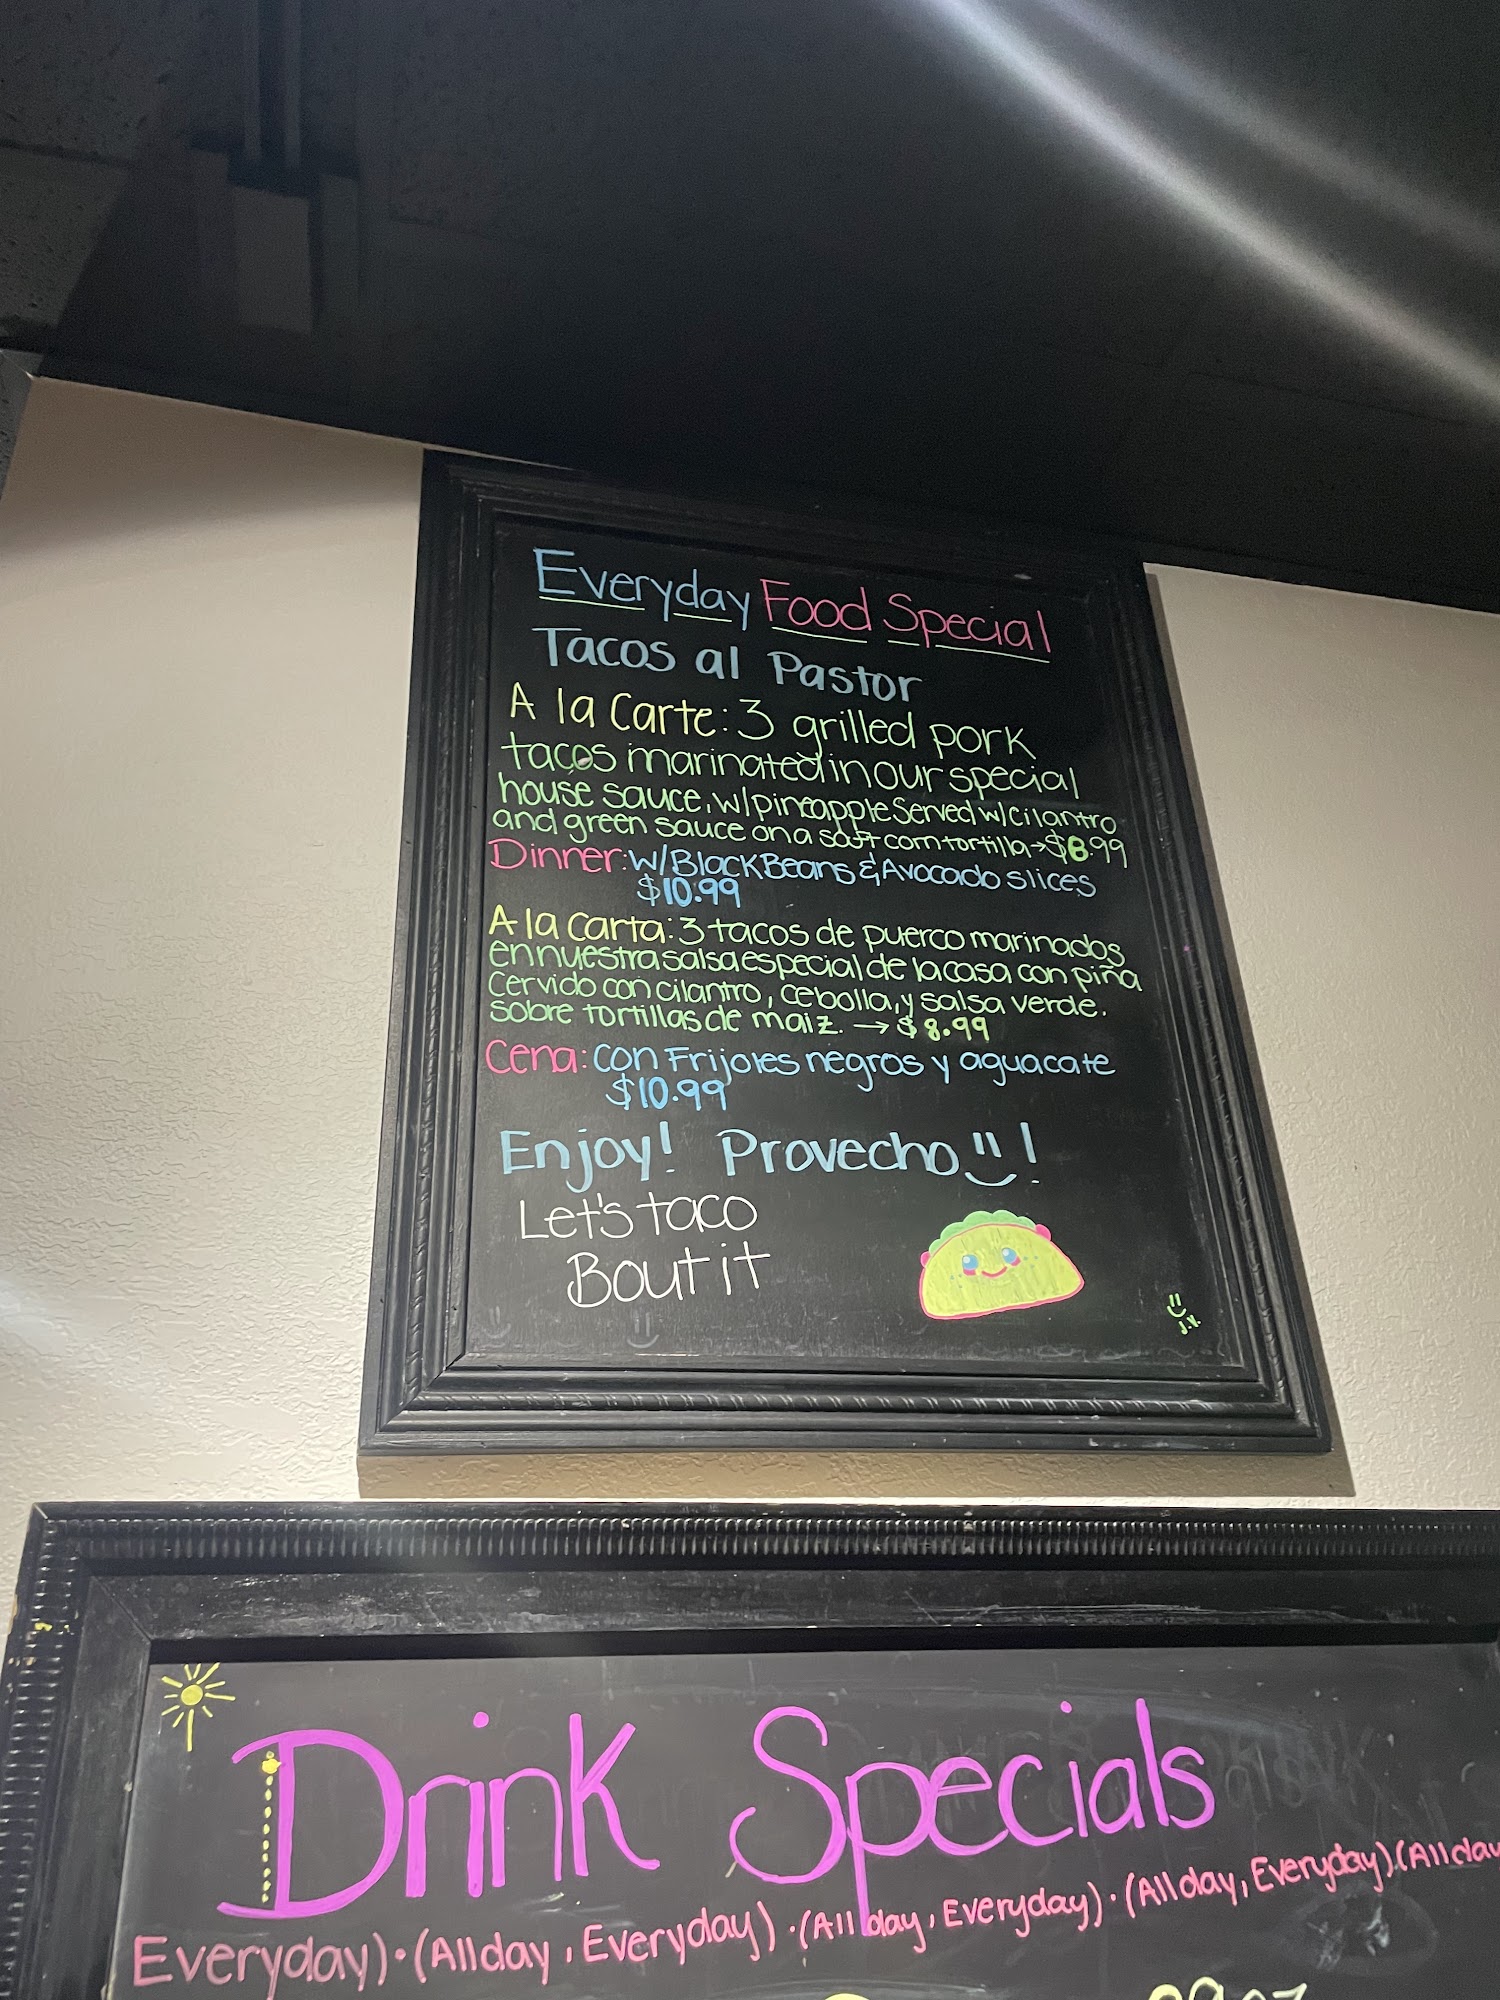 Everyday Food Special
Tacos al Pastor
A la Carte: 3 grilled pork
tacos marinated in our special
house sauce, w/pineapple Served w/cilantro
and green sauce on a soft corn tortilla → $8.99
Dinner: w/Black Beans & Avocado slices
$10.99
A la Carta: 3 tacos de puerco marinados
en nuestra salsa especial de la casa con piña
Cervido con cilantro, cebolla, y salsa verde.
sobre tortillas de maiz. → $8.99
Cena: con Frijoles negros y aguacate
$10.99
Enjoy! Provecho !
Let's taco
Bout it
J.V.
Drink Specials
Everyday) · (All day, Everyday) · (All day, Everyday) · (All day, Everyday) · (All day